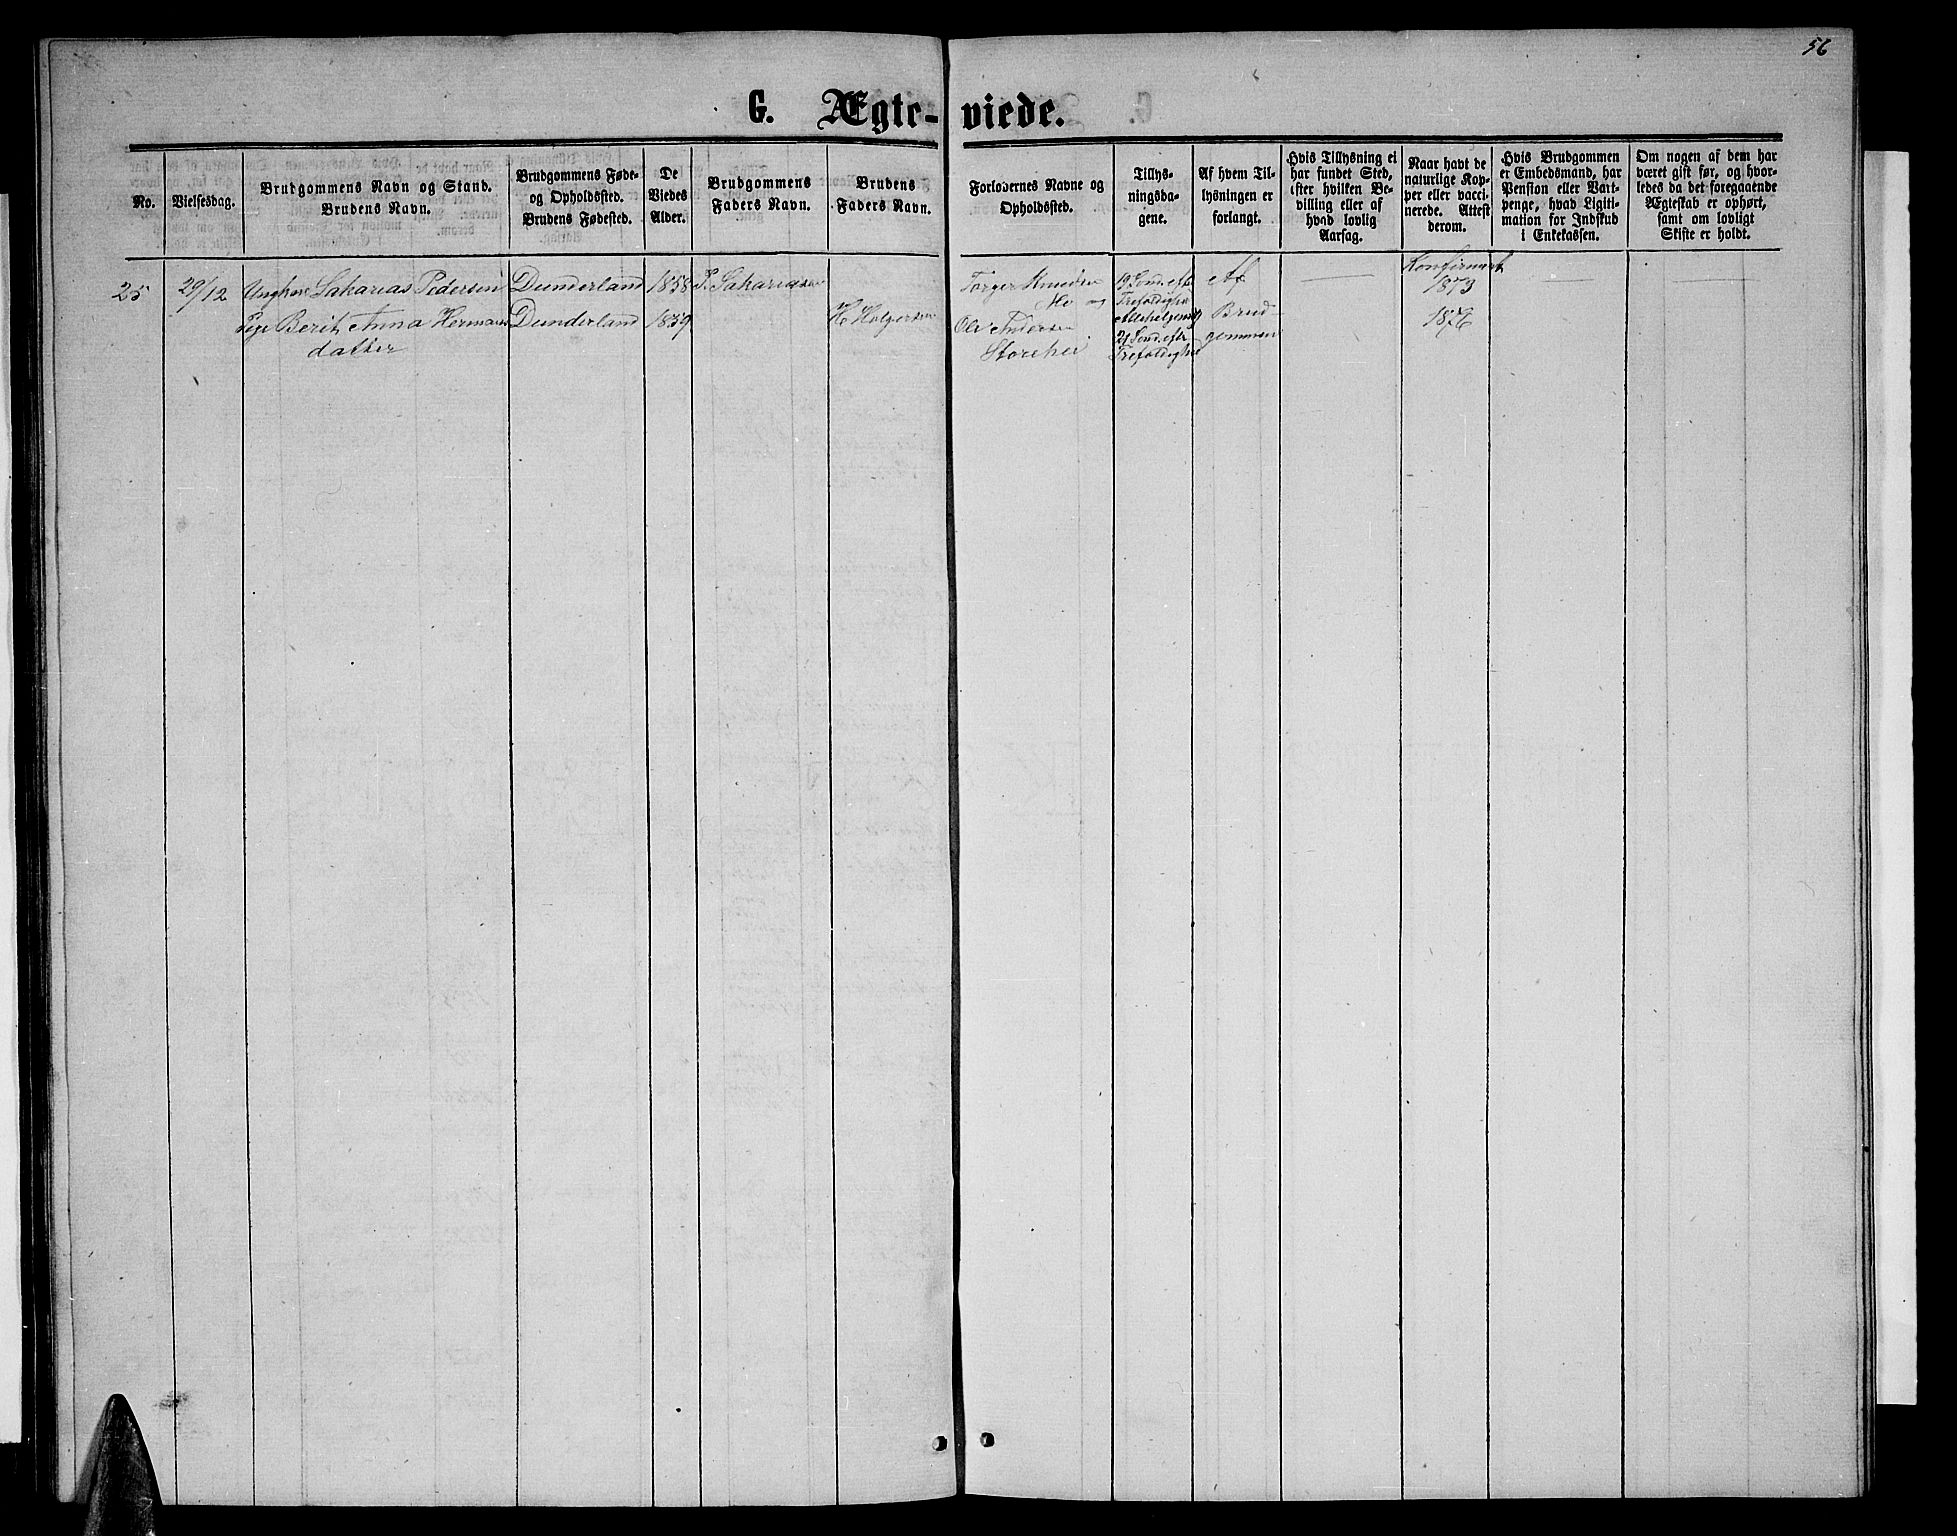 56
G. Ægte-viede.
No.
Vielsesdag.
Brudgommens Navn og Stand.
Brudens Navn.
Brudgommens Føde-
og Opholdssted.
Brudens Fødested.
De
Viedes
Alder.
Brudgommens
Faders Navn.
Brudens
Faders Navn.
Forlovernes Navne og
Opholdssted.
Tillys-
ningsda-
gene.
Af hvem Til-
lysningen er
forlangt.
Hvis Tillysning ei
har fundet Sted,
efter hvilken Be-
villing eller af
hvad lovlig
Aarsag.
Naar havt de
naturlige Kop-
per eller vacci-
nerede. Attest
derom.
Hvis Brudgommen
er Embedsmand, har
Pension eller Vart-
penge, hvad Ligiti-
mation for Indskud
i Enkekassen.
Om nogen af dem har
været gift før, og hvor-
ledes da det foregaaende
Ægteskab er ophørt,
samt om lovligt
Skifte er holdt.
25
29/12
Ungkar Sakarias Pedersen
Pige Berit Anna Hermans
datter
Dunderland
Dunderland
1858
1859
P. Sakariasen
H. Holgersen
Torger Knudsen
Mo og
Ole Andersen
Storehei
19 Sond. eft
Trefoldighed
Allehelgensd
21 Sond. eft
Trefoldighed
Af
Brud-
gommen
Konfirmert
1873
1876